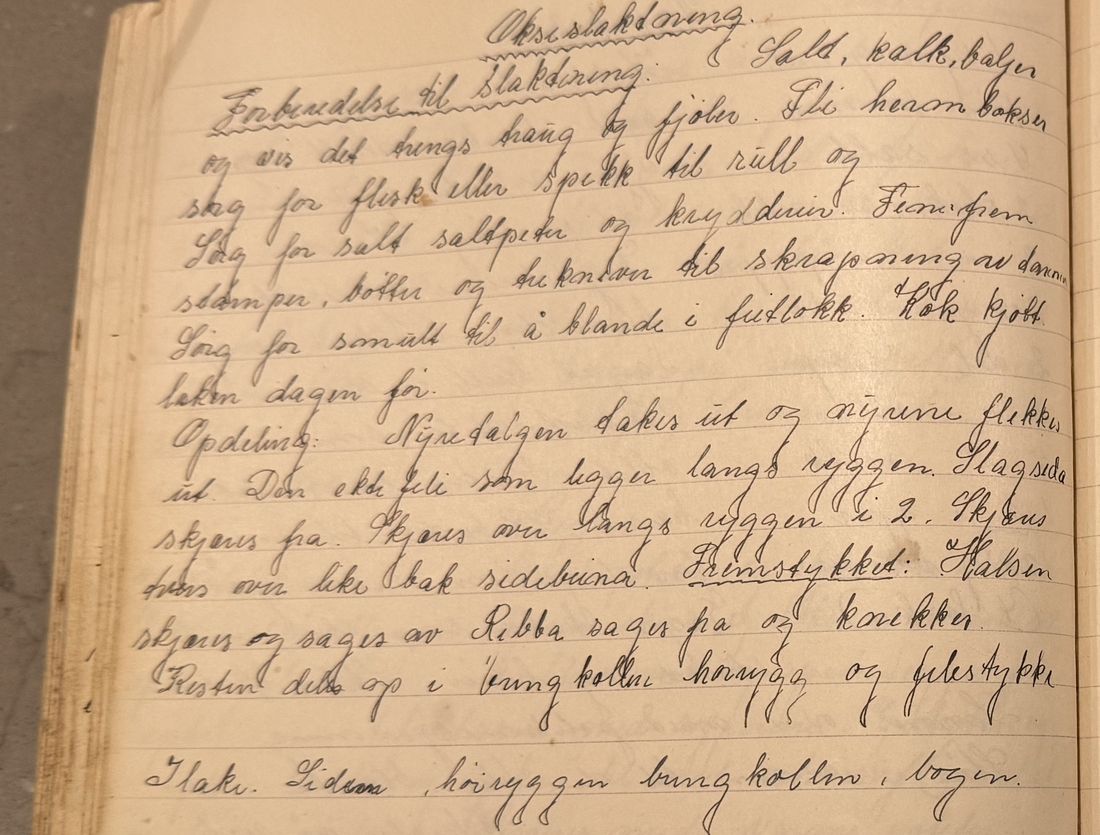 Okseslaktning.
Forberedelse til slaktning. Salt, kalk, baljer
og vis det trengs traug og fjøler. Fli herm bokser
sørg for flesk eller spekk til rull og
Sørg for salt saltpeter og krydderier. Finn frem
stamper, bøtter og trekniver til skrapning av tarmer
Sørg for smult til å blande i fettlokk. Kok kjøtt
laken dagen før.
Opdeling: Nyretalgen takes ut og nyrene flekkes
ut. Den ekte fele som ligger langs ryggen. Slagsida
skjæres fra. Skjæres over langs ryggen i 2. Skjæres
tvers over like bak sidebeina. Fremstykket: Halsen
skjæres og sages av Ribba sages fra og knekkes.
Resten deles op i bringkollen høirygg og filestykke
I lake. Siden, høiryggen bringkollen, bogen.